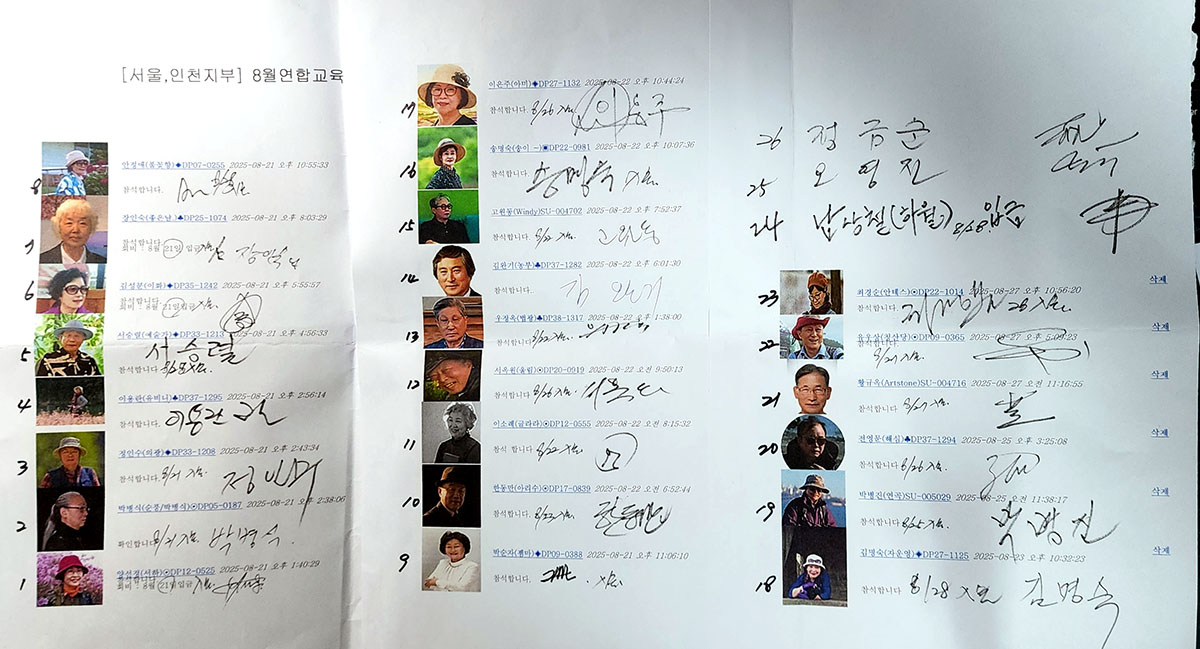 [서울,인천지부] 8월연합교육
8
안성애(풀꽃향)◆DP07-0255 2025-08-21 오후 10:55:33
참석합니다.
7
장인숙(좋은날)♣DP25-1074 2025-08-21 오후 8:03:29
참석합니다.
회비 : 8월 21일 입금 장인숙
6
김성분(이화)◆DP35-1242 2025-08-21 오후 5:55:57
참석합니다
회비 : 8월 21일입금
5
서승렬(예솔가)◆DP33-1213 2025-08-21 오후 4:56:33
서승렬
참석합니다
4
이용란(유비니)♣DP37-1295 2025-08-21 오후 2:56:14
참석합니다. 이용란
3
정인수(의광)♣DP33-1208 2025-08-21 오후 2:43:34
참석합니다. 8/21 입금.
2
박병식(순경/박병식)⊙DP05-0187 2025-08-21 오후 2:38:06
확인합니다 8/21 입금. 박병식.
1
양선경(서하)⊙DP12-0525 2025-08-21 오후 1:40:29
참석합니다
회비 : 8월 21일 입금
17
이은주(아미)◆DP27-1132 2025-08-22 오후 10:44:24
참석합니다. 8/26 입금. 이은주
16
송명숙(송이 ~)▣DP22-0981 2025-08-22 오후 10:07:36
참석합니다. 송명숙 입금.
15
고원동(Windy)SU-004702 2025-08-22 오후 7:52:37
참석합니다. 8/22 입금. 고원동
14
김완기(농부)♣DP37-1282 2025-08-22 오후 6:01:30
참석합니다.. 김완기
13
우장옥(법광)♣DP38-1317 2025-08-22 오후 1:38:00
참석합니다. 8/22 입금.
12
서옥원(울림)⊙DP20-0919 2025-08-22 오전 9:50:13
참석합니다. 8/26 입금.
11
이소례(글라라)⊙DP12-0555 2025-08-22 오전 8:15:32
참석 합니다. 8/22 입금.
10
한동만(아리수)⊙DP17-0839 2025-08-22 오전 6:52:44
참석합니다. 8/22 입금. 한동만
9
박순자(젬마)◆DP09-0388 2025-08-21 오후 11:06:10
참석합니다. 입금.
26 정금순
25 오영진
24 남상철(하월) 8/28 입금
삭제
23
최경순(안테스)⊙DP22-1014 2025-08-27 오후 10:56:20
참석합니다. 28 입금.
삭제
22
2025-08-27 오후 5:09:23
참석합니다. 8/27 입금.
삭제
21
황규옥(Artstone)SU-004716 2025-08-27 오전 11:16:55
참석합니다. 8/27 입금.
삭제
20
전영문(해심)♣DP37-1294 2025-08-25 오후 3:25:08
참석합니다. 8/26 입금.
삭제
19
박병진(연곡)SU-005029 2025-08-25 오전 11:38:17
참석합니다. 8/25 입금. 박병진
삭제
18
김명숙(자운영)◆DP27-1125 2025-08-23 오전 10:32:23
참석합니다 8/28 입금 김명숙